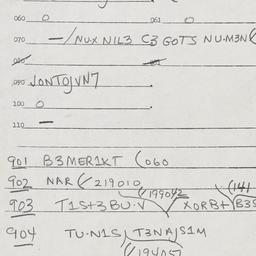 060 O 061 O
070 —/NUX NIL3 C3 GOTS NU-M3N(
080
090 JONTOJVN7
100 O
110 —
901 B3MER1KT (060
902 NAR (/219010
(/199042 (141
903 T1S+3 BU.V XORB+ B3S
904 TU-N1S T3NAJS1M
(/194051